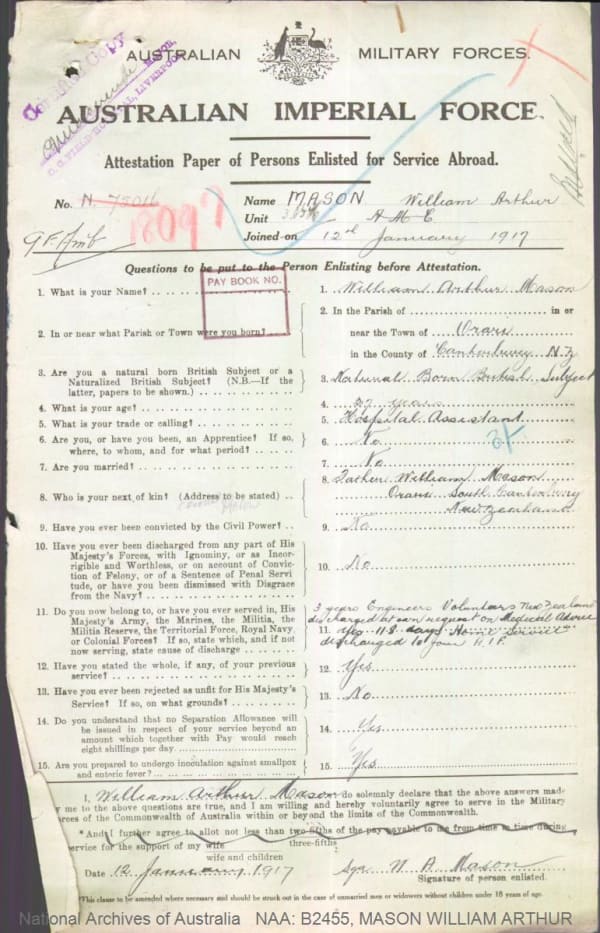 AUSTRALIAN MILITARY FORCES.
AUSTRALIAN IMPERIAL FORCE.
Attestation Paper of Persons Enlisted for Service Abroad.
No. N. 75016 18097
Name MASON William Arthur
Unit A M E
Joined on 12th January 1917
Questions to be put to the Person Enlisting before Attestation.
PAY BOOK NO.
1. What is your Name? 1. William Arthur Mason
2. In or near what Parish or Town were you born? 2. In the Parish of in or
near the Town of Orari
in the County of Canterbury N.Z
3. Are you a natural born British Subject or a
Naturalized British Subject? (N.B.—If the
latter, papers to be shown.) 3 Natural Born British Subject
4. What is your age? 4 27 years
5. What is your trade or calling? 5. Hospital Assistant
6. Are you, or have you been, an Apprentice? If so,
where, to whom, and for what period? 6. No
7. Are you married? 7. No
8. Who is your next of kin? (Address to be stated) 8. Father William Mason
Orari South Canterbury
New Zealand
9. Have you ever been convicted by the Civil Power? 9. No
10. Have you ever been discharged from any part of His
Majesty's Forces, with Ignominy, or as Incor-
rigible and Worthless, or on account of Convic-
tion of Felony, or of a Sentence of Penal Servi
tude, or have you been dismissed with Disgrace
from the Navy? 10. No
11. Do you now belong to, or have you ever served in, His
Majesty's Army, the Marines, the Militia, the
Militia Reserve, the Territorial Force, Royal Navy
or Colonial Forces? If so, state which, and if not
now serving, state cause of discharge
3 years Engineers Volunteers New Zealand
discharged at own request on Medical Advice
11 Yes 118 days Home Service
discharged to join A.I.F.
12. Have you stated the whole, if any, of your previous
service? 12. Yes
13. Have you ever been rejected as unfit for His Majesty's
Service? If so, on what grounds? 13. No
14. Do you understand that no Separation Allowance will
be issued in respect of your service beyond an
amount which together with Pay would reach
eight shillings per day. 14. Yes
15. Are you prepared to undergo inoculation against smallpox
and enteric fever? 15. Yes
I, William Arthur Mason do solemnly declare that the above answers made
by me to the above questions are true, and I am willing and hereby voluntarily agree to serve in the Military
Forces of the Commonwealth of Australia within or beyond the limits of the Commonwealth.
*And I further agree to allot not less than two-fifths of the pay payable to me from time to time during
three-fifths
service for the support of my wife
wife and children
Date 12 January 1917 Sgr W A Mason
Signature of person enlisted.
*This clause to be amended where necessary and should be struck out in the case of unmarried men or widowers without children under 18 years of age.
National Archives of Australia NAA: B2455, MASON WILLIAM ARTHUR